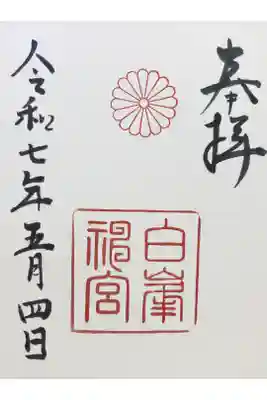 奉拝
白峯神宮
令和七年五月四日